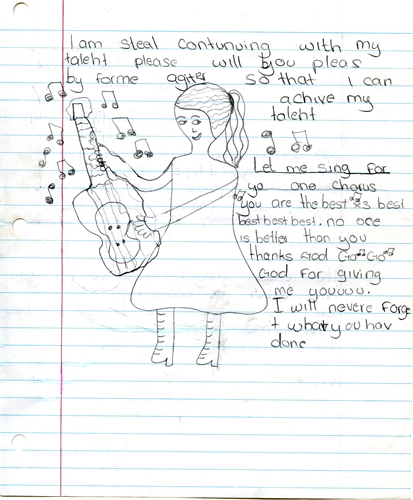 I am steal contunuing with my
talent please will you pleas
by forme agiter so that I can
achive my
talent
Let me sing for
yo one chorus
You are the best 3 best
best best best. no one
is better than you
thanks God God God
God for giving
me youuuu.
I will nevere forge
t what you hav
done